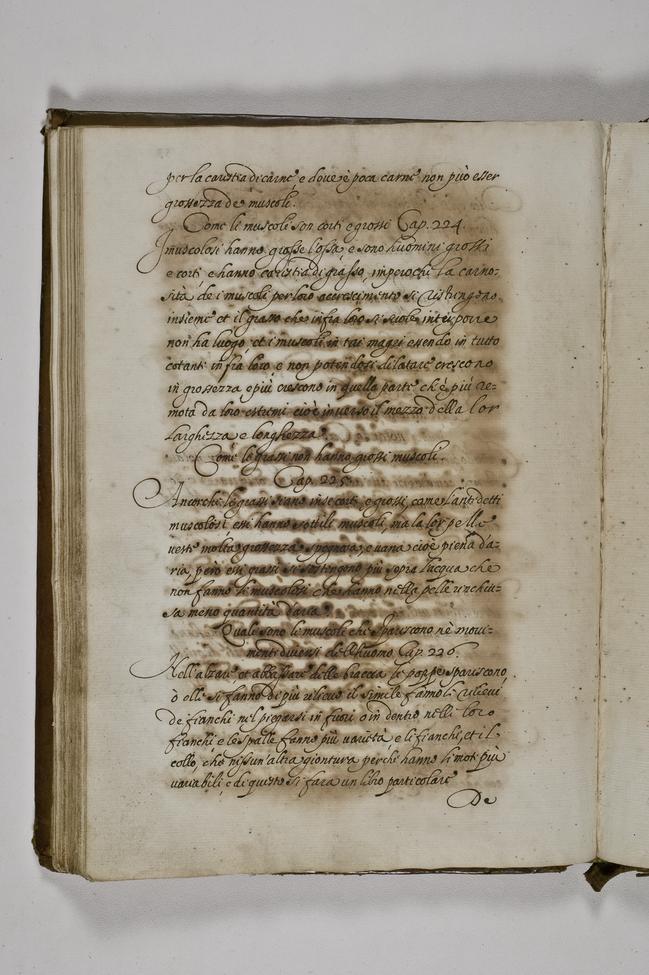 per la carestia di carne, e dove è poca carne non può esser
grossezza de muscoli.
Come li muscoli son corti e grossi Cap. 224.
I muscolosi hanno grosse l'ossa, e sono huomini grossi
e corti, e hanno carestia di grasso, imperochè la carno-
sità de i muscoli per loro accrescimento si ristringono
insieme et il grasso che infra loro si suole interporre
non ha luogo, et i muscoli in tai magri essendo in tutto
cotanti infra loro, e non potendosi dilatare crescono
in grossezza e più crescono in quella parte ch'è più re-
mota da loro estremi cioè inverso il mezzo della lor
larghezza e longhezza.
Come li grassi non hanno grossi muscoli.
Cap. 225.
Ancorche li grassi siano in se corti, e grossi, come l'antidetti
muscolosi, essi hanno sottili muscoli, ma la lor pelle
veste molta grossezza spognosa, e vana cioè piena d'a-
ria, però essi grassi si sostengono più sopra l'acqua che
non fanno li muscolosi che hanno nella pelle rinchiu-
sa meno quantità d'aria.
Quale sono li muscoli che spariscono nè movi-
menti diversi dell'huomo Cap. 226.
Nell'alzare et abbassare delle braccia le poppe spariscono,
ò elle si fanno di più rilievo il simile fanno li rilievi
de fianchi nel piegarsi in fuori o in dentro nelli loro
fianchi, e le spalle fanno più varietà, e li fianchi, et il
collo, che nissun'altra giontura perchè hanno li moti più
variabili, e di questo si fara un libro particolare
De